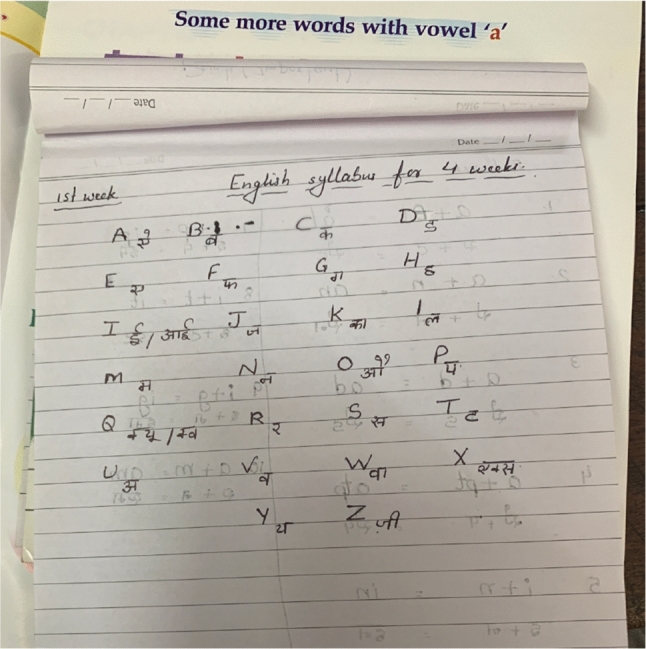 Some more words with vowel ‘a’
Date __/__/__
Date __/__/__
1st week English syllabus for 4 weeks.
A ऐ B ब C क D ड
E ए F फ G ग H ह
I ई/आई J ज K का l ल
M म N न O ओ P प
Q क्यू/क्व R र S स T ट
U अ V व W वा X एक्स
Y य Z ज़ी